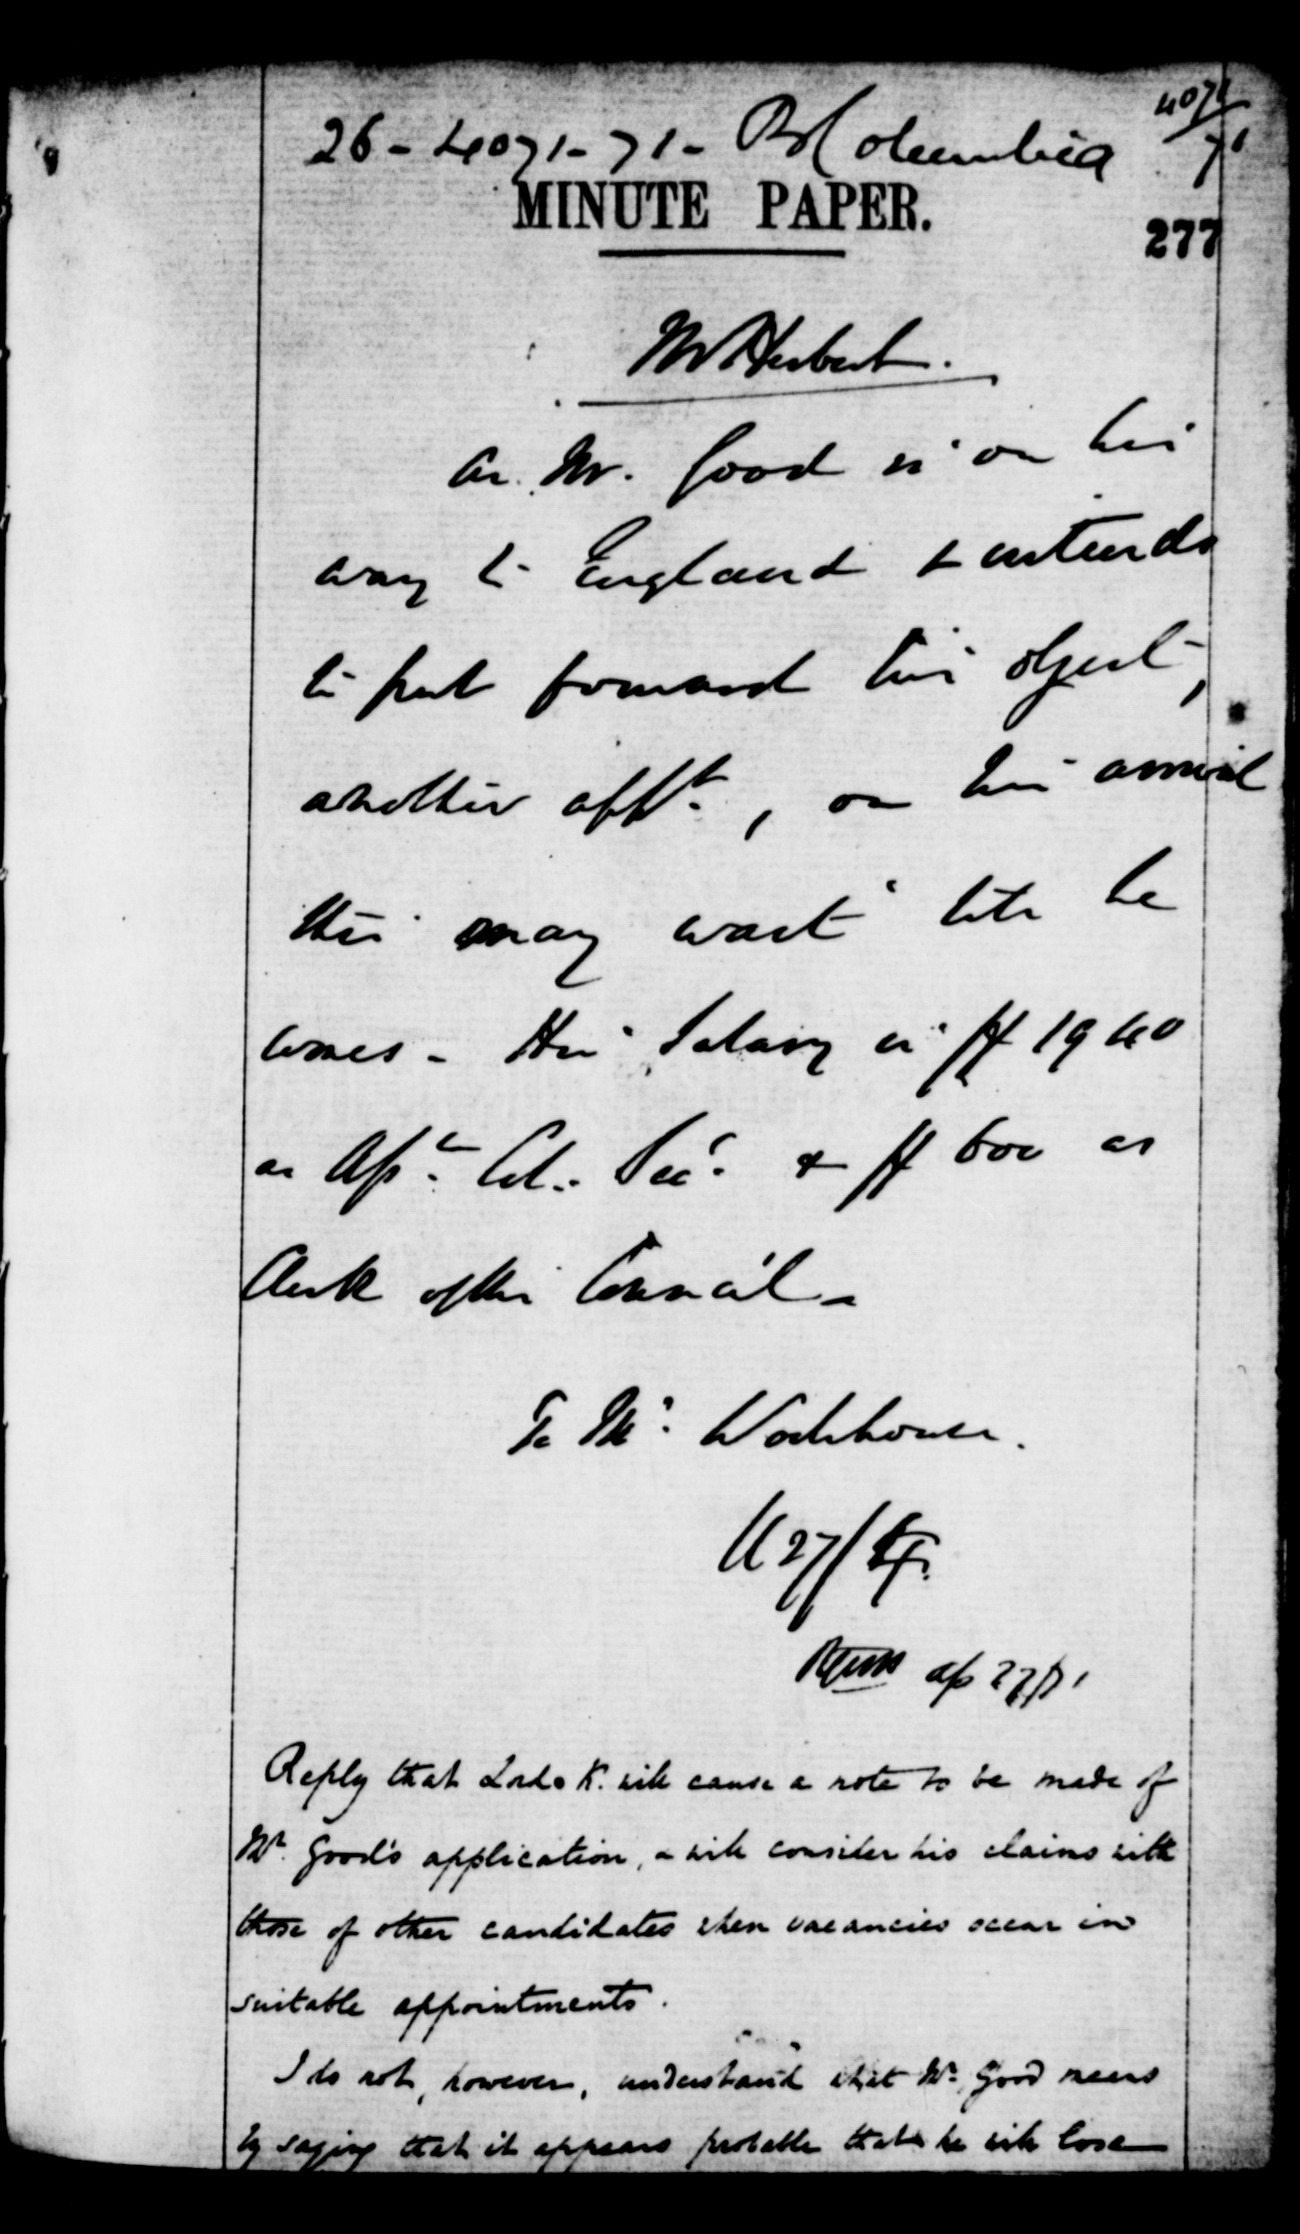 4071/71
26-4071-71- B Columbia
MINUTE PAPER.
277
Mr Herbert.
As Mr. Good is on his
way to England & intends
to put forward his object,
another appt., on his arrival
this may wait till he
comes - His Salary is $1940
as Asst. Col. Sec. & $ 600 as
Clerk of the Council -
To Mr. Wodehouse.
27/4
Ap 27/71
Reply that Lord K. will cause a note to be made of
Mr. Good's application, & will consider his claims with
those of other candidates when vacancies occur in
suitable appointments.
I do not, however, understand what Mr. Good means
by saying that it appears probable that he will lose